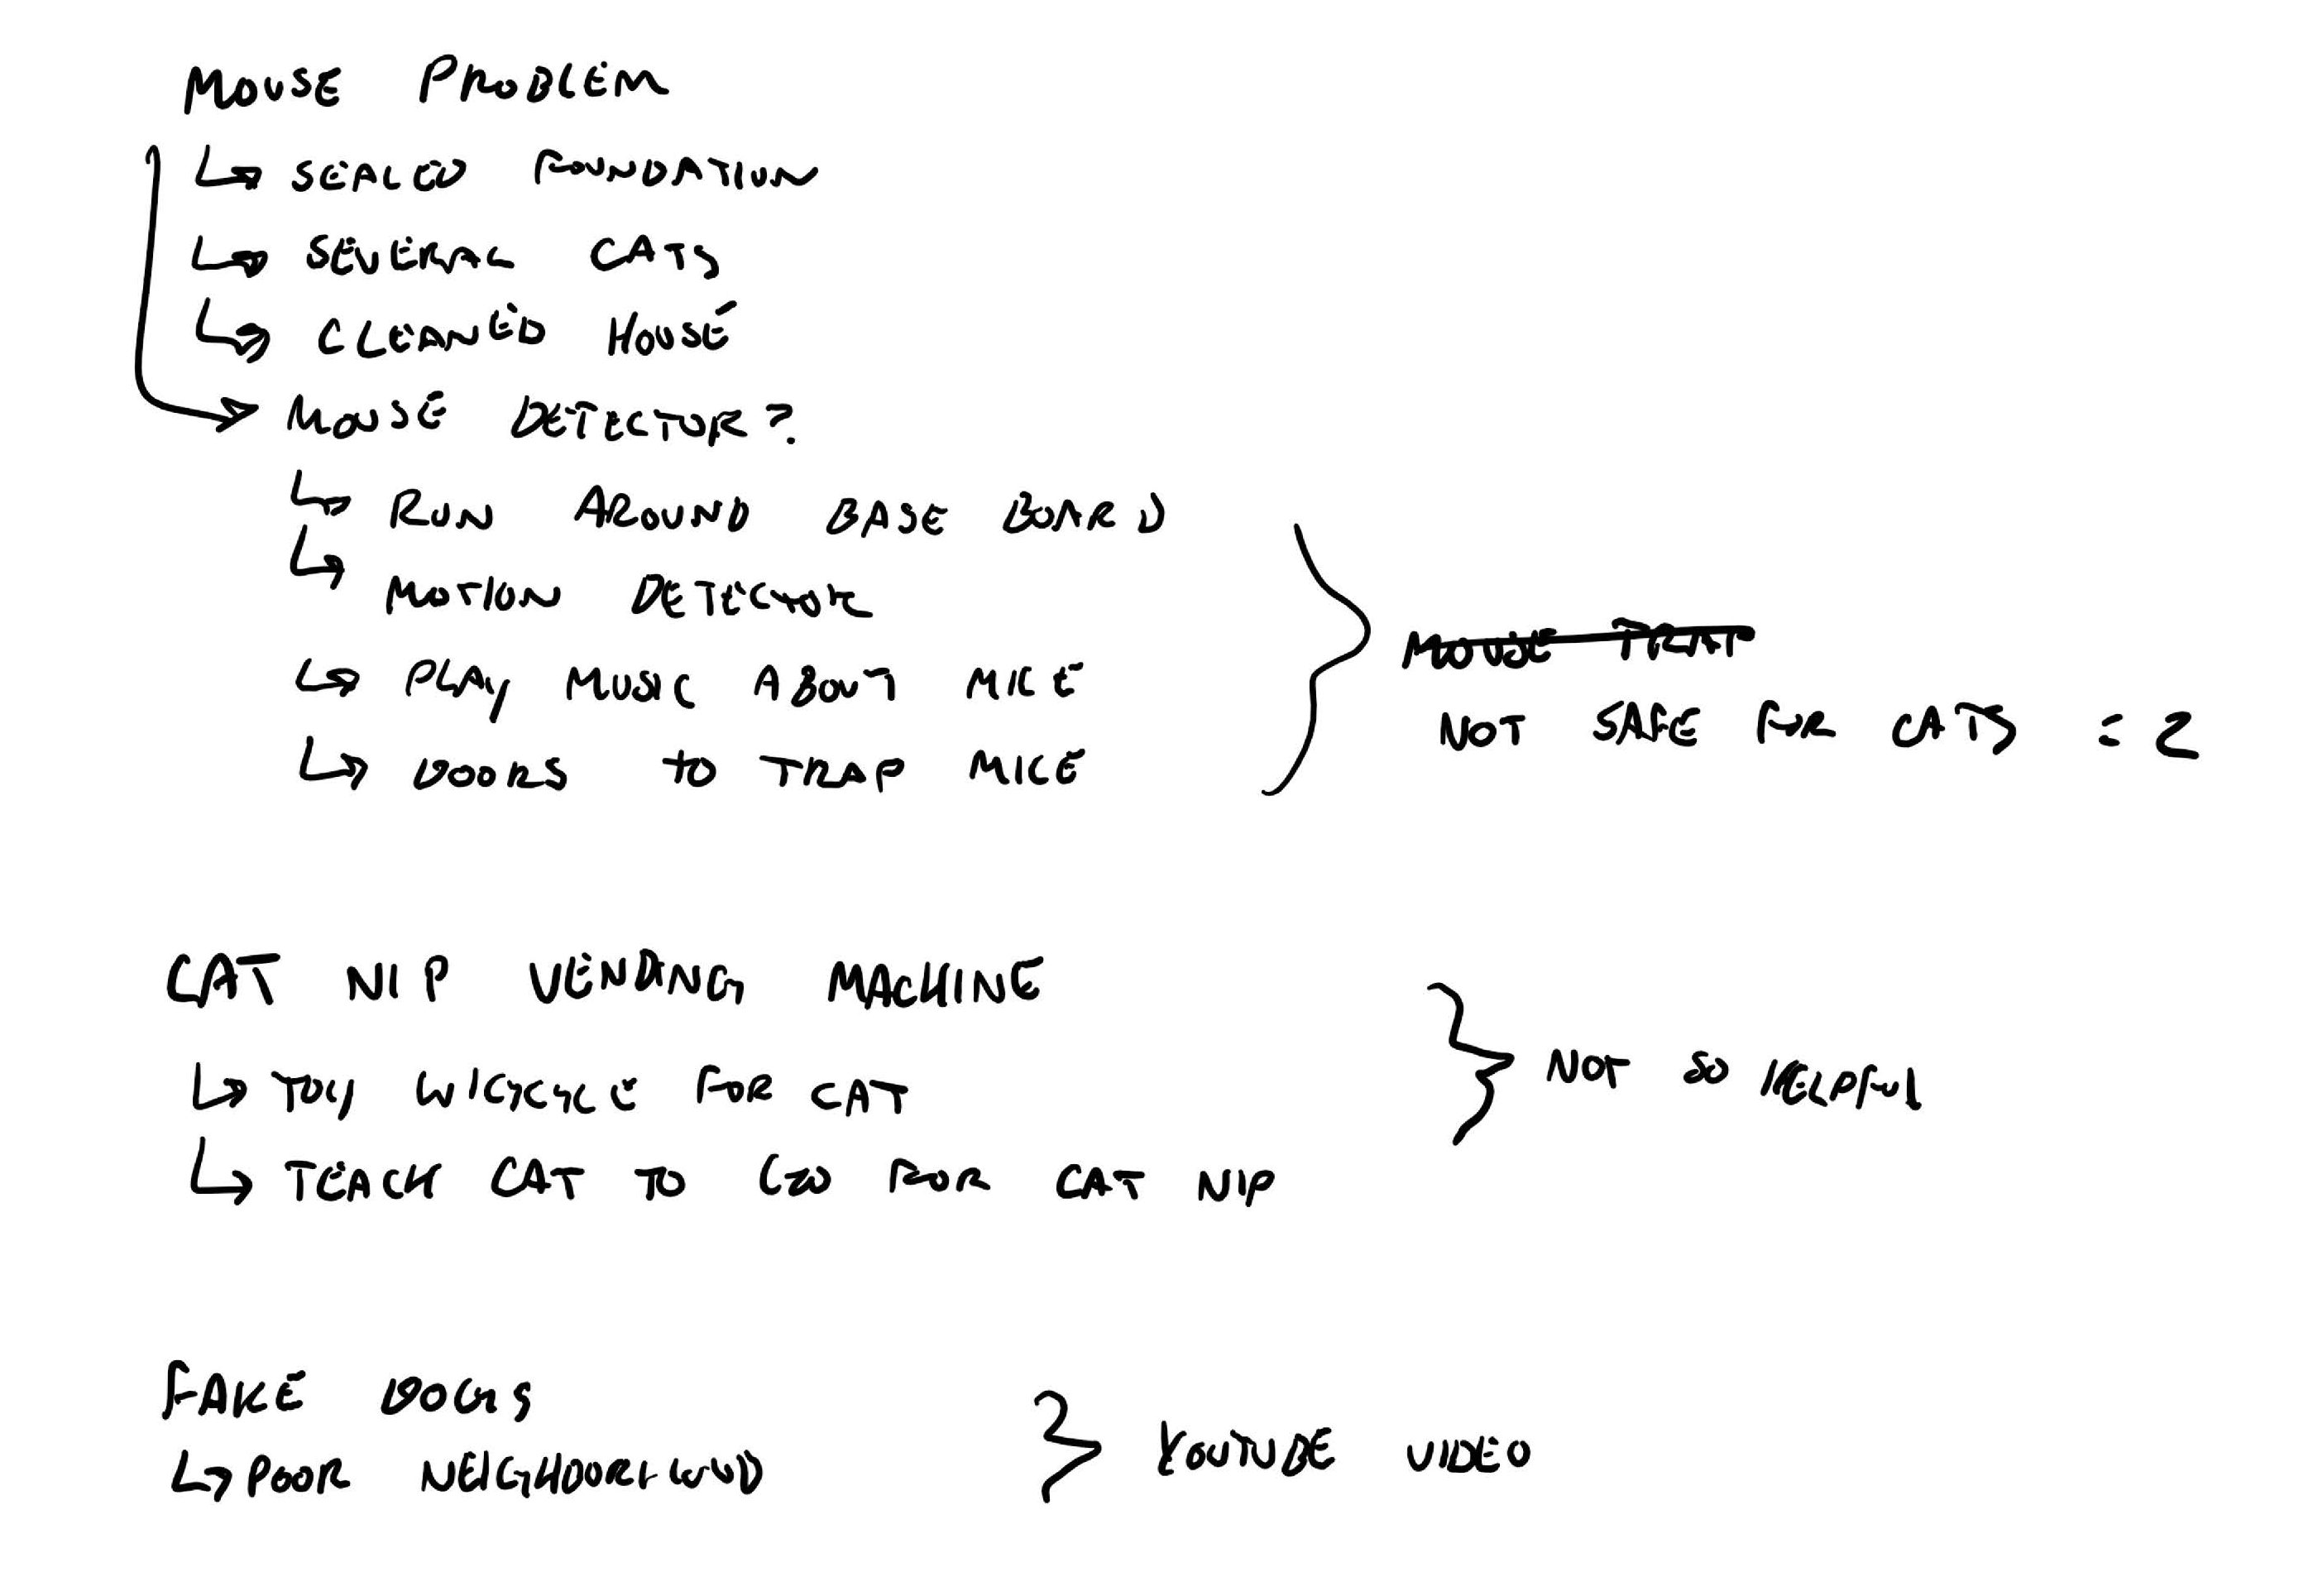 MOUSE PROBLEM
SEALED FOUNDATION
SEVERAL CATS
CLEANED HOUSE
MOUSE DETECTOR?
RUN AROUND BASE BOARD
MOTION DETECTOR
MOUSE TRAP
PLAY MUSIC ABOUT MICE
NOT SAFE FOR CATS = 2
DOORS TO TRAP MICE
CAT NIP VENDING MACHINE
NOT SO HELPFUL
TOY FOR CAT
TEACH CAT TO GO FOR CAT NIP
FAKE DOGS
YOUTUBE VIDEO
POOR NEIGHBOURHOOD